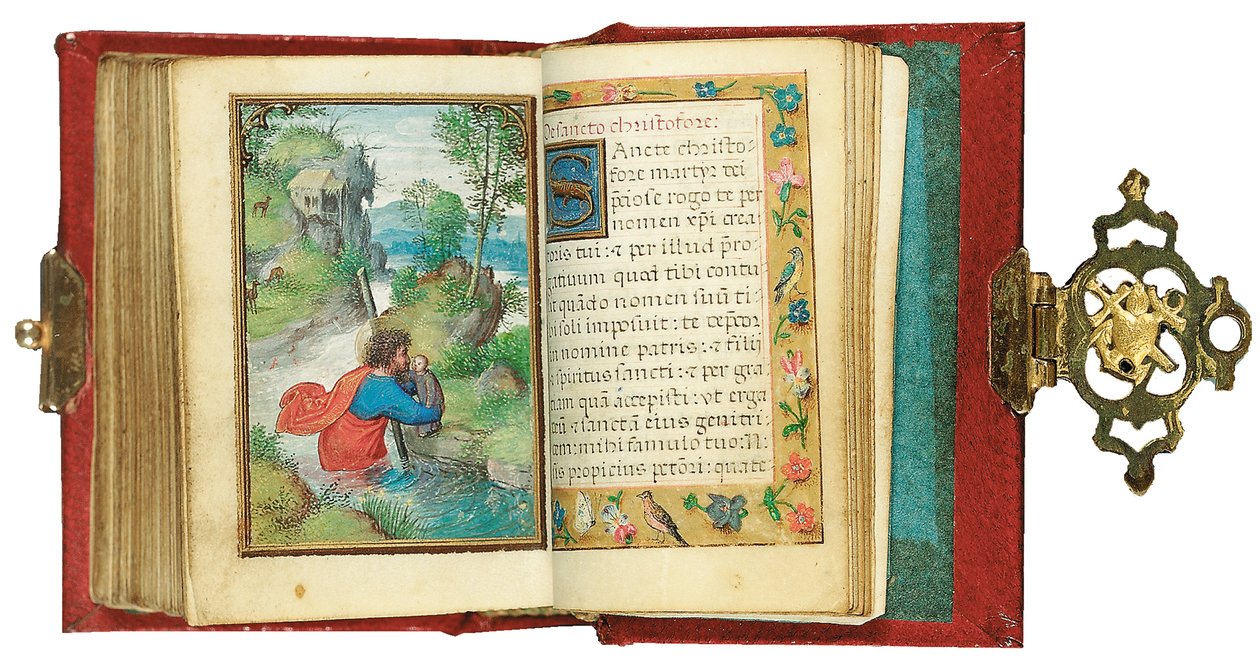 De sancto christofore:
SAncte christo-
fore martyr dei
p̄ciose rogo te per
nomen xp̄i crea-
toris tui: ⁊ per illud p̄ro-
gatiuum quod tibi contu-
lit quādo nomen suū ti-
bi soli imposuit: te dep̄cor
in nomine patris: ⁊ filii
⁊ spiritus sancti: ⁊ per gra-
tiam quā accepisti: vt erga
deū ⁊ sanctā eius genitri-
cem: mihi famulo tuo: N:
sis propicius p̄ctōri: quate-